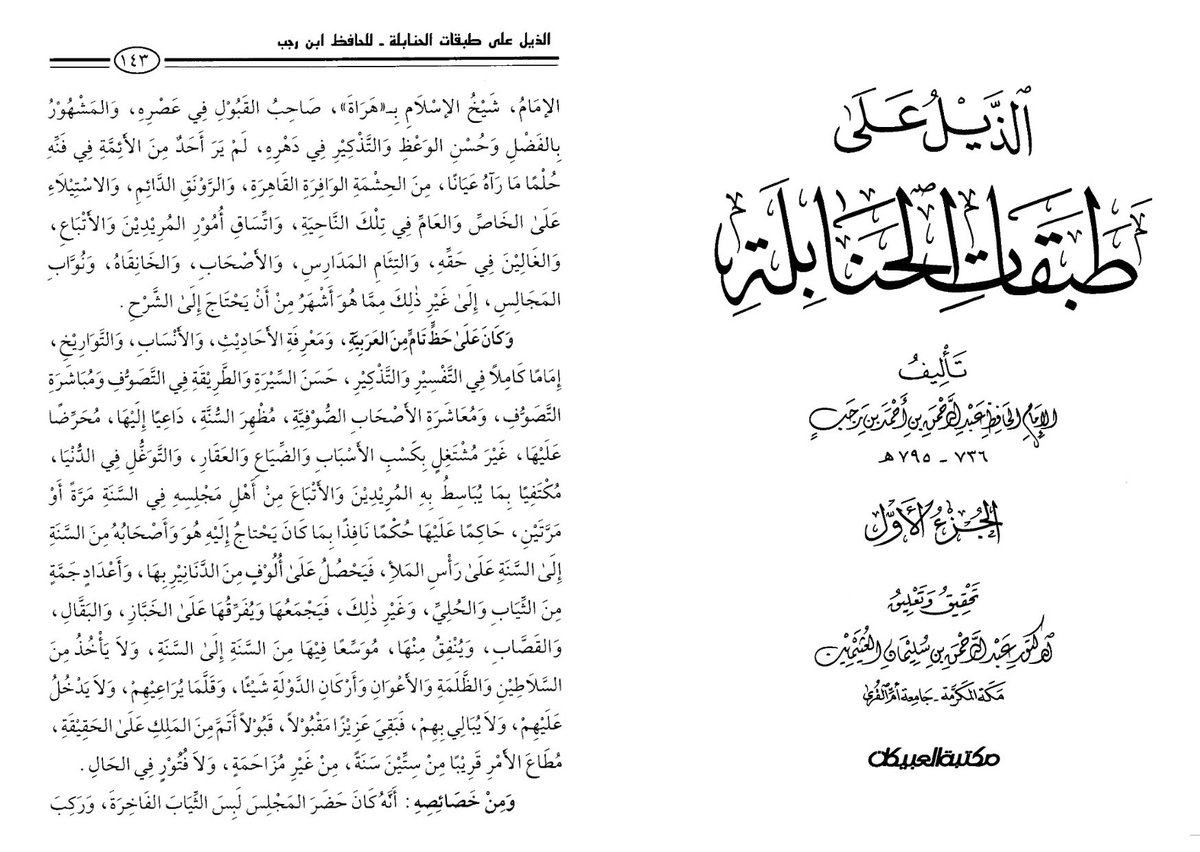 الذَّيْلُ عَلَى
طَبَقَاتِ الحَنَابِلَةِ
تَأْلِيفُ
الإِمَامِ الحَافِظِ عَبْدِ الرَّحْمَنِ بْنِ أَحْمَدَ بْنِ رَجَبٍ
٧٣٦ - ٧٩٥ هـ
الجُزْءُ الأَوَّلُ
تَحْقِيقُ وَتَعْلِيقُ
الدكتور عَبْدِ الرَّحْمَنِ بن سُلَيْمَان العُثَيْمِين
مَكَّة المكَرَّمة - جَامعة أمّ القُرى
مكتبة العبيكان
الذيل على طبقات الحنابلة - للحافظ ابن رجب
١٤٣
الإِمَامُ، شَيْخُ الإِسْلَامِ بِـ«هَرَاةَ»، صَاحِبُ القَبُوْلِ فِي عَصْرِهِ، وَالمَشْهُوْرُ
بِالفَضْلِ وَحُسْنِ الوَعْظِ وَالتَّذْكِيْرِ فِي دَهْرِهِ، لَمْ يَرَ أَحَدٌ مِنَ الأَئِمَّةِ فِي فَنِّهِ
حُلْمًا مَا رَآهُ عَيَانًا، مِنَ الحِشْمَةِ الوَافِرَةِ القَاهِرَةِ، وَالرَّوْنَقِ الدَّائِمِ، وَالاسْتِيْلَاءِ
عَلَىٰ الخَاصِّ وَالعَامِّ فِي تِلْكَ النَّاحِيَةِ، وَاتِّسَاقِ أُمُوْرِ المُرِيْدِيْنَ وَالأَتْبَاعِ،
وَالغَالِيْنَ فِي حَقِّهِ، وَالتِئَامِ المَدَارِسِ، وَالأَصْحَابِ، وَالخَانِقَاهُ، وَنُوَّابِ
المَجَالِسِ، إِلَىٰ غَيْرِ ذٰلِكَ مِمَّا هُوَ أَشْهَرُ مِنْ أَنْ يَحْتَاجَ إِلَىٰ الشَّرْحِ.
وَكَانَ عَلَىٰ حَظٍّ تَامٍّ مِنَ العَرَبِيَّةِ، وَمَعْرِفَةِ الأَحَادِيْثِ، وَالأَنْسَابِ، وَالتَّوَارِيْخِ،
إِمَامًا كَامِلاً فِي التَّفْسِيْرِ وَالتَّذْكِيْرِ، حَسَنَ السِّيْرَةِ وَالطَّرِيْقَةِ فِي التَّصَوُّفِ وَمُبَاشَرَةِ
التَّصَوُّفِ، وَمُعَاشَرَةِ الأَصْحَابِ الصُّوْفِيَّةِ، مُظْهِرَ السُّنَّةِ، دَاعِيًا إِلَيْهَا، مُحَرِّضًا
عَلَيْهَا، غَيْرَ مُشْتَغِلٍ بِكَسْبِ الأَسْبَابِ وَالضِّيَاعِ وَالعَقَارِ، وَالتَّوَغُّلِ فِي الدُّنْيَا،
مُكْتَفِيًا بِمَا يُبَاسِطُ بِهِ المُرِيْدِيْنَ وَالأَتْبَاعَ مِنْ أَهْلِ مَجْلِسِهِ فِي السَّنَةِ مَرَّةً أَوْ
مَرَّتَيْنِ، حَاكِمًا عَلَيْهَا حُكْمًا نَافِذًا بِمَا كَانَ يَحْتَاجُ إِلَيْهِ هُوَ وَأَصْحَابُهُ مِنَ السَّنَةِ
إِلَىٰ السَّنَةِ عَلَىٰ رَأْسِ المَلأِ، فَيَحْصُلُ عَلَىٰ أُلُوْفٍ مِنَ الدَّنَانِيْرِ بِهَا، وَأَعْدَادٍ جَمَّةٍ
مِنَ الثِّيَابِ وَالحُلِيِّ، وَغَيْرِ ذٰلِكَ، فَيَجْمَعُهَا وَيُفَرِّقُهَا عَلَىٰ الخَبَّازِ، وَالبَقَّالِ،
وَالقَصَّابِ، وَيُنْفِقُ مِنْهَا، مُوَسِّعًا فِيْهَا مِنَ السَّنَةِ إِلَىٰ السَّنَةِ، وَلاَ يَأْخُذُ مِنَ
السَّلَاطِيْنِ وَالظَّلَمَةِ وَالأَعْوَانِ وَأَرْكَانِ الدَّوْلَةِ شَيْئًا، وَقَلَّمَا يُرَاعِيْهِمْ، وَلاَ يَدْخُلُ
عَلَيْهِمْ، وَلاَ يُبَالِي بِهِمْ، فَبَقِيَ عَزِيْزًا مَقْبُوْلاً، قَبُوْلاً أَتَمَّ مِنَ المَلِكِ عَلَىٰ الحَقِيْقَةِ،
مُطَاعَ الأَمْرِ قَرِيْبًا مِنْ سِتِّيْنَ سَنَةً، مِنْ غَيْرِ مُزَاحَمَةٍ، وَلاَ فُتُوْرٍ فِي الحَالِ.
وَمِنْ خَصَائِصِهِ: أَنَّهُ كَانَ حَضَرَ المَجْلِسَ لَبِسَ الثِّيَابَ الفَاخِرَةَ، وَرَكِبَ